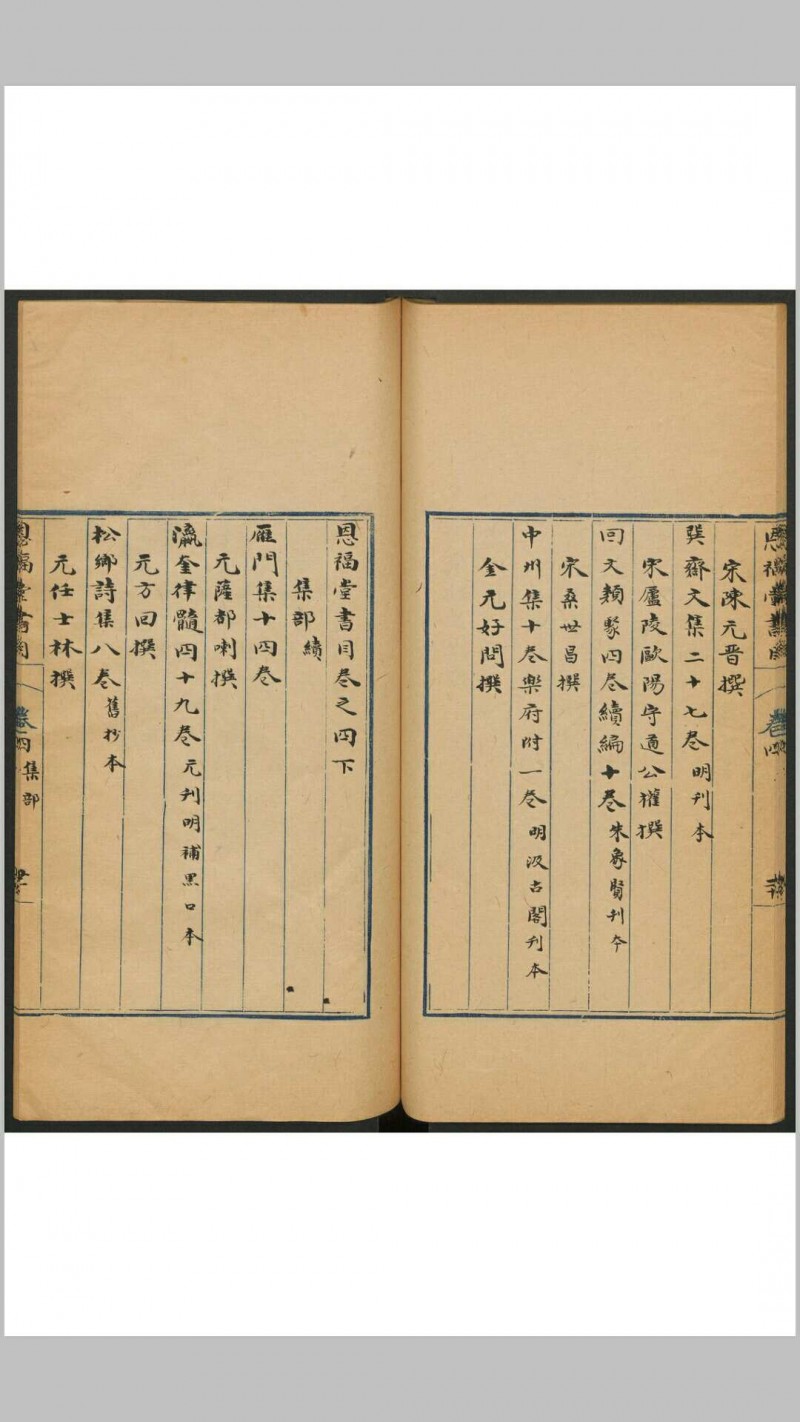 恩福堂書目
卷四
宋陳元晋撰
巽齋文集二十七卷 明刋本
宋廬陵歐陽守道公權撰
回文類聚四卷續編十卷 朱象賢刋本
宋桑世昌撰
中州集十卷樂府附一卷 明汲古閣刋本
金元好問撰
恩福堂書目卷之四下
集部 續
雁門集十四卷
元薩都喇撰
瀛奎律髓四十九卷 元刋明補黑口本
元方回撰
松鄉詩集八卷 舊抄本
元任士林撰
恩福堂書目
卷四 集部